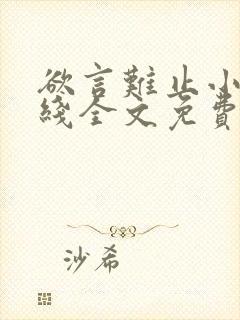 欲言難止小
綫全文免費
沙希